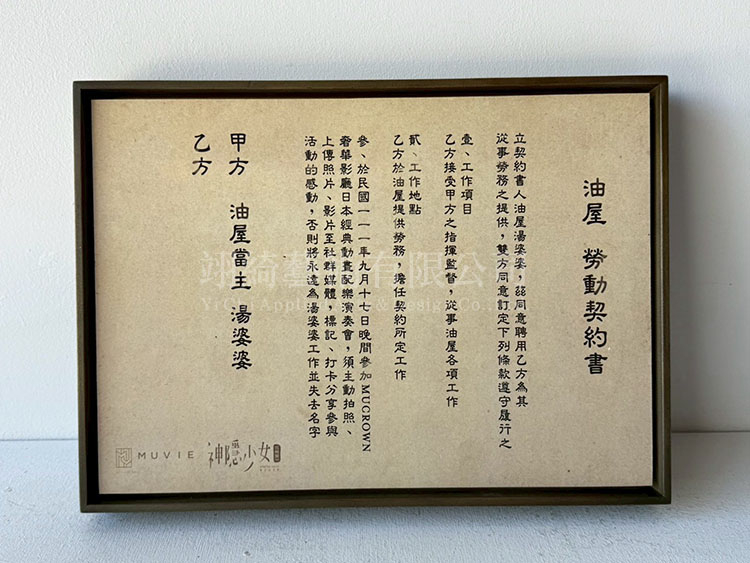 油屋 勞動契約書
立契約書人油屋湯婆婆，茲同意聘用乙方為其
從事勞務之提供，雙方同意訂定下列條款遵守履行之
壹、工作項目
乙方接受甲方之指揮監督，從事油屋各項工作
貳、工作地點
乙方於油屋提供勞務，擔任契約所定工作
參、於民國一一一年九月十七日晚間參加MUCROWN
奢華影廳日本經典動畫配樂演奏會，須主動拍照、
上傳照片、影片至社群媒體，標記、打卡分享參與
活動的感動，否則將永遠為湯婆婆工作並失去名字
甲方 油屋當主 湯婆婆
乙方
MUVIE
神隱少女